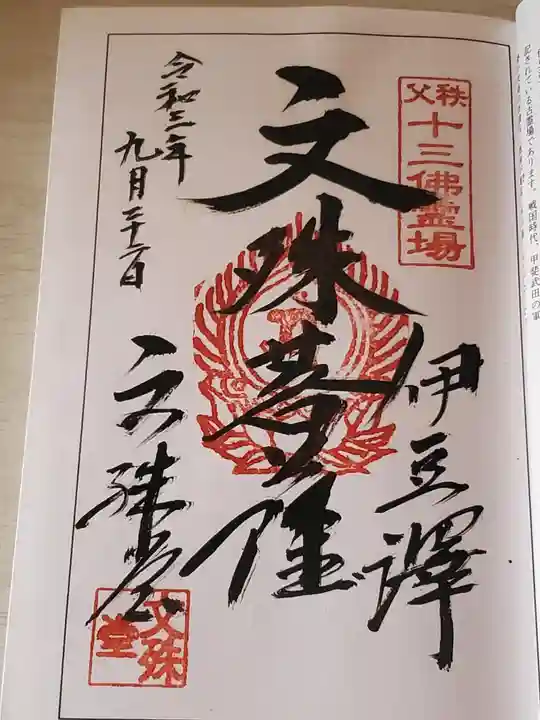 記されている古霊場であります。戦国時代、甲斐武田の軍
秩父
十三佛霊場
伊豆澤
文殊菩薩
令和三年
九月二十二日
文殊堂
文殊
堂